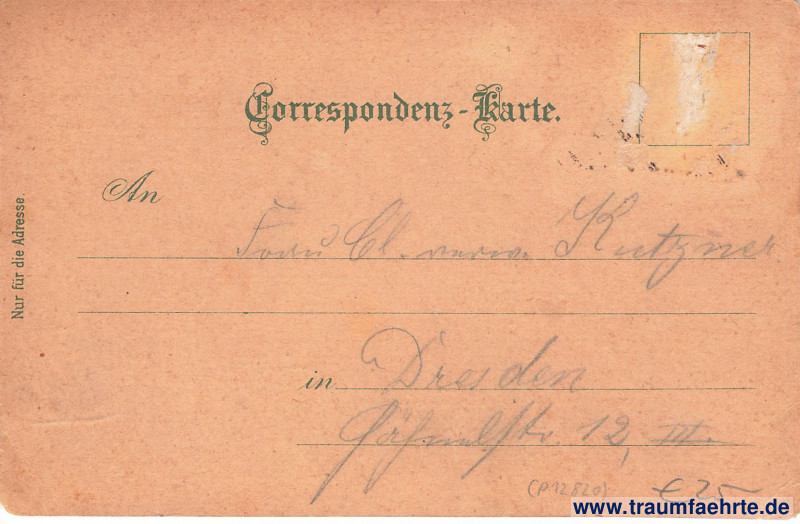 Correspondenz-Karte.
An
Nur für die Adresse.
Frau Cl. verw. Kutzner
in Dresden
12, III.
(P12820)
€ 25
www.traumfaehrte.de